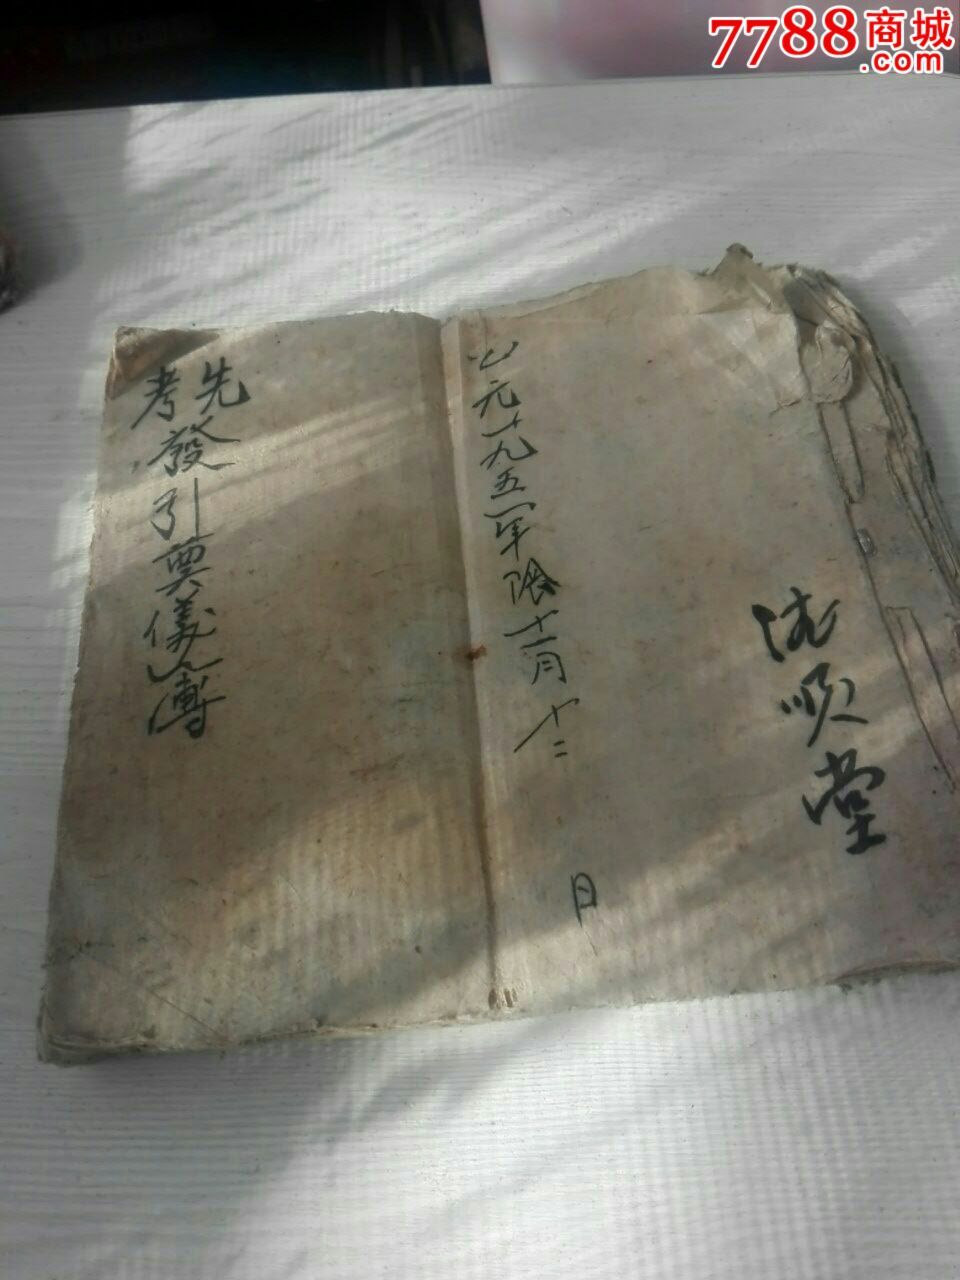 7788商城
.com
先考發引奠儀簿
公元一九五一年陰十一月十二日
顺堂